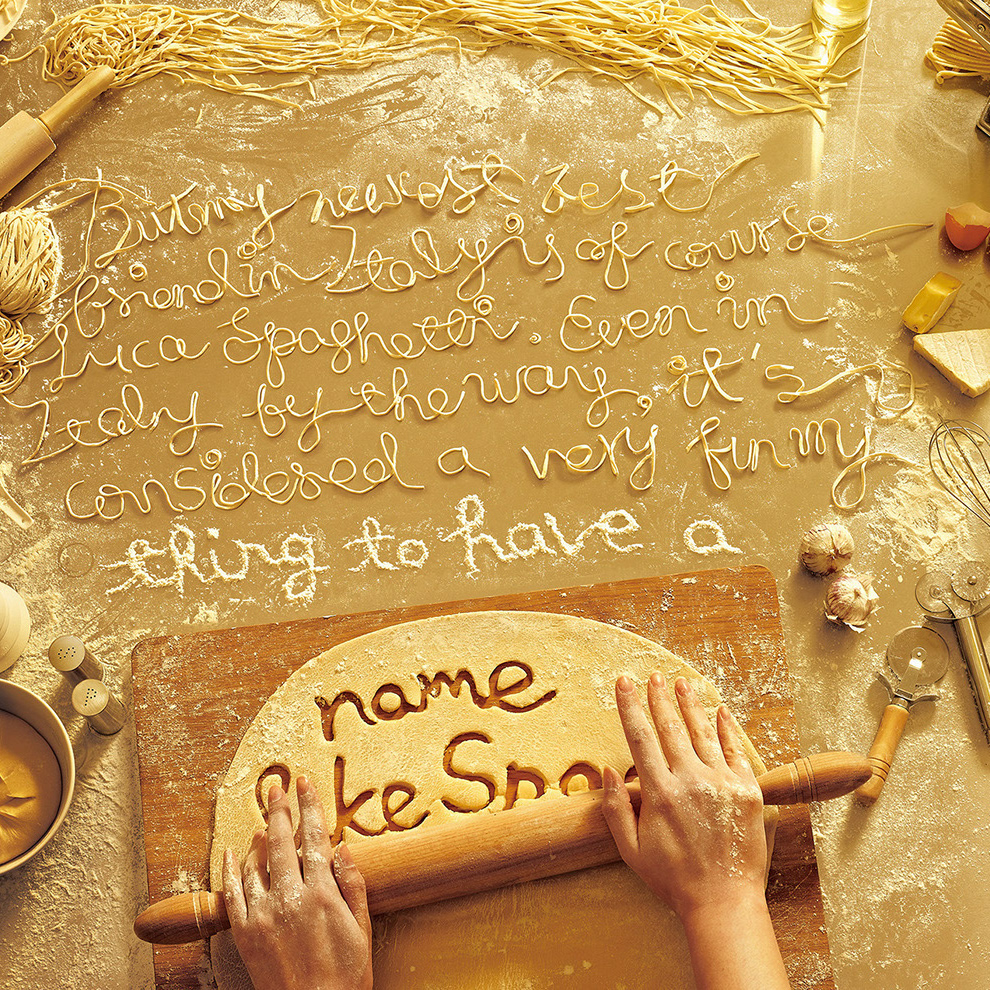 But my newest best
friend in Italy is of course
Luca Spaghetti. Even in
Italy by the way, it's
considered a very funny
thing to have a
name
like Spag